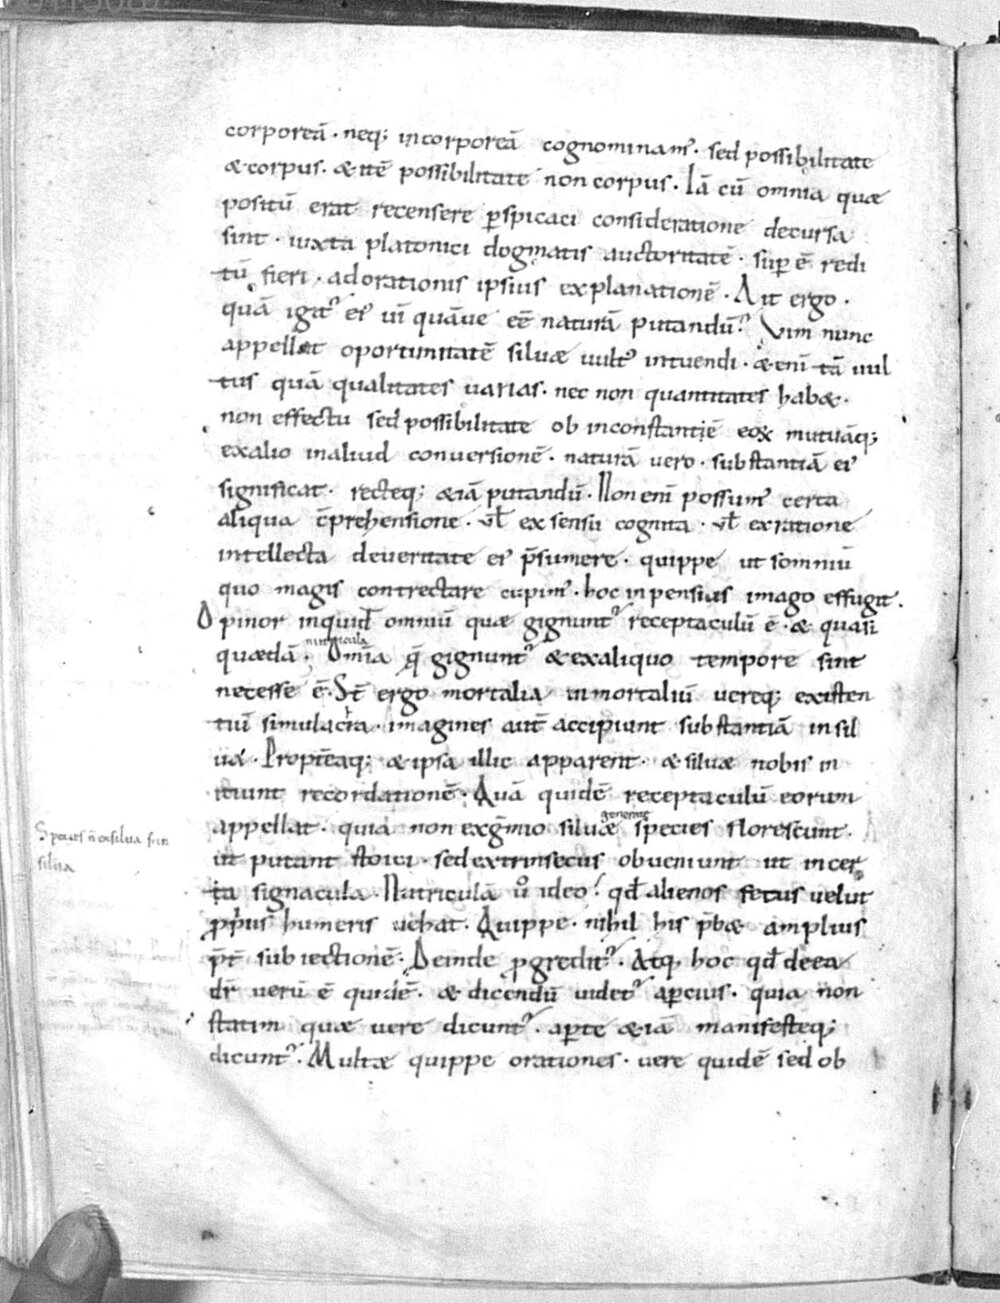 corporeā · neq; incorporeā cognominam᷒ · sed possibilitate
& corpus · & itē possibilitate non corpus · Iā cū omnia quæ
positū erat recensere ꝑspicaci consideratione decursa
sint · iuxta platonici dogmatis auctoritatē · suꝑ ē redi
tū fieri · ad orationis ipsius explanationē · Ait ergo ·
quā igit᷑ ei᷒ uī quāue eē naturā putandū? Vim nunc
appellat oportunitatē siluæ uult᷒ intuendi · & enī tā uul
tus quā qualitates uarias · nec non quantitates hab& ·
non effectu sed possibilitate ob inconstantiē eoꝝ mutuāq;
ex alio in aliud conuersionē · naturā uero · substantiā ei᷒
significat · recteq; &iā putandū · Non enī possum᷒ certa
aliqua cp̄rehensione · ul̄ ex sensu cognita · ul̄ ex ratione
intellecta de ueritate ei᷒ p̄sumere · quippe ut somniū
quo magis contrectare cupim᷒ · hoc inpensius imago effugit .
Opinor inquid omniū quæ gignunt᷑ receptaculū ē · & quasi
nutricula
quædā · Omīa q̄ gignunt᷑ & ex aliquo tempore sint
necesse ē · St̄ ergo mortalia inmortaliū uereq; existen
tiū simulacra · imagines aut̄ accipiunt substantiā in sil
ua · Propt̄eaq; & ipsa illic apparent · & siluæ nobis in
itiunt recordationē · Quā quidē receptaculū eorum
generatę
appellat · quia non ex gr̄mio siluæ species florescunt ·
ut putant stoici · sed extrinsecus obueniunt ut in cer
ta signacula · Nutriculā u᷎o ideo · qd̄ alienos fetus uelut
pp̄riis humeris uehat · Quippe · nihil his p̄b& amplius
p̄t̄ subiectionē · Deinde ꝓgredit᷑ · Atq; hoc qd̄ de ea
dr̄ uerū ē quidē · & dicendū uidet᷑ aꝑcius · quia non
statim quæ uere dicunt᷑ · aꝑte &iā manifesteq;
dicunt᷑ · Multæ quippe orationes · uere quidē sed ob
Species n̄ ex silua
silua